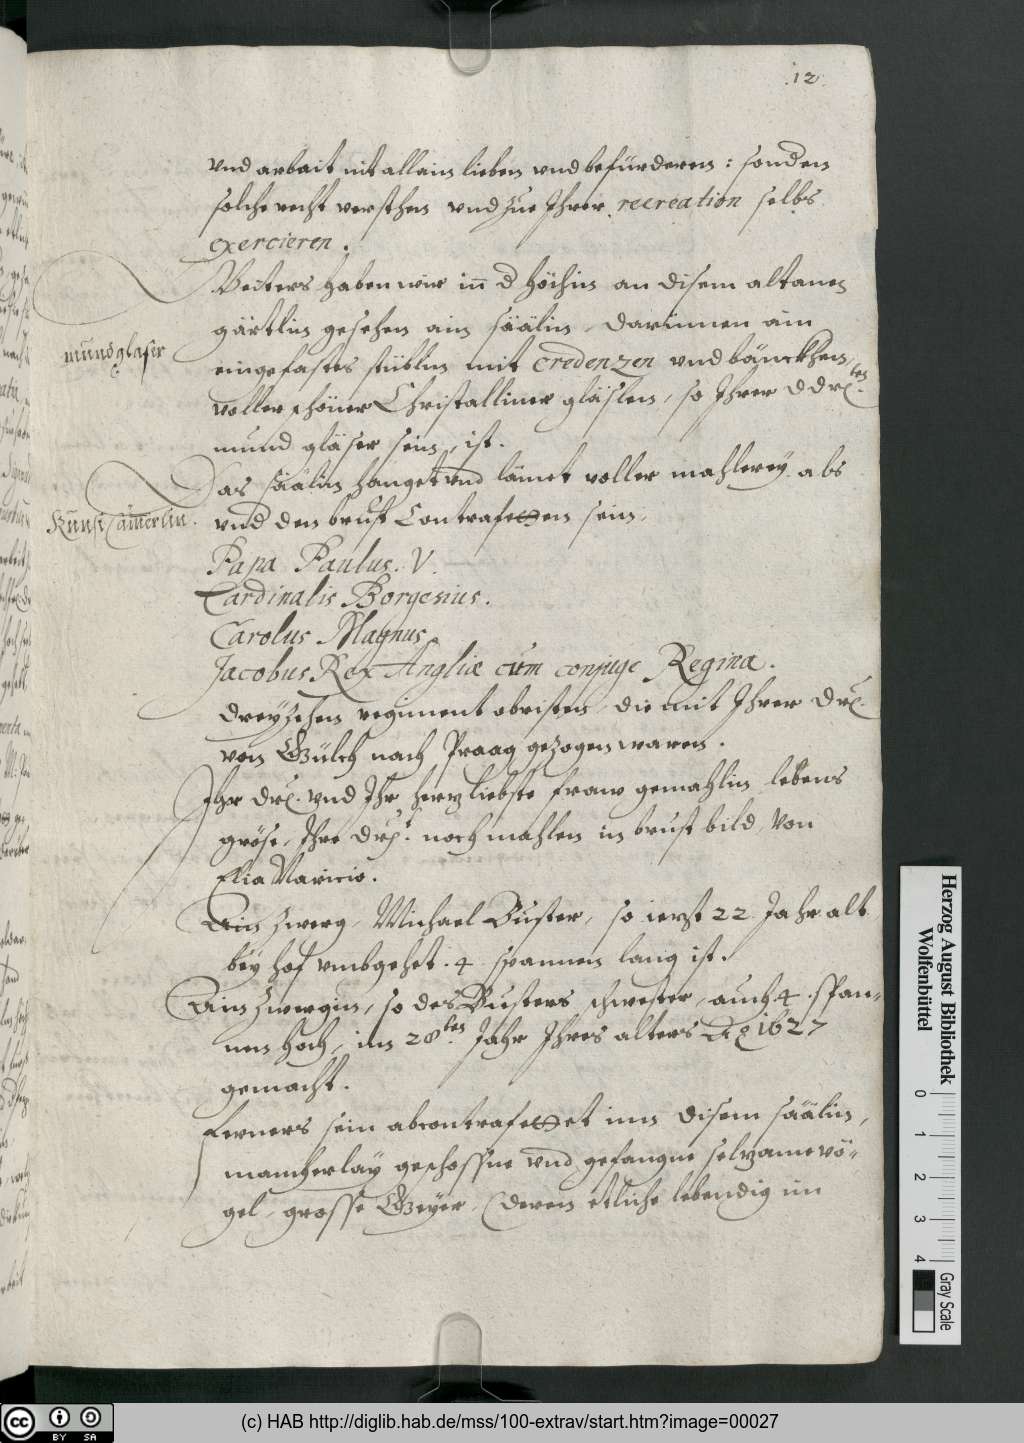 .12.
vnd arbait nit allain lieben vnd befürderen: sonden
solche recht versthen vnd zue Ihrer recreation selbs
exercieren.
Weiters haben wir in d höhin an disem altanen
gärtlin gesehen ain säälin, darinnen ain
mundgläser
eingefastes stüblin mit credenzen vnd bänckhen,
voller schöner Christalliner gläslen, so Ihrer ddrl.ten
mund gläser sein, ist.
Das säälin hanget vnd lainet voller mahlerey abs
Kunst Camerlin.
vnd den brust Contrafetten sein.
Papa Paulus. V.
Cardinalis Borgesius.
Carolus Magnus.
Jacobus Rex Angliæ cum conjuge Regina.
dreyzehen regiment obristen, die mit Ihrer drl.
von Gülch nach Praag gezogen waren.
Ihr drl. vnd Ihr herzliebste fraw gemahlin lebens
gröse, Ihre drl. nochmahlen in brust bild, Von
Elia Maricio.
Ain zwerg, Michael Buster, so ierst 22 Jahr alt
bey hof vmbgehet. 4 spannen lang ist.
Ain zwergin, so des Busters schwester, auch 4. span-
nen hoch, im 28ten. Jahr Ihres alters Ao 1627
gemacht.
Ferners sein abcontrafetet inn disem säälin,
mancherlay geschossne vnd gefangne selzame vö-
gel, grosse Geyer, (deren etliche lebendig im
Herzog August Bibliothek
Wolfenbüttel
0 1 2 3 4
Gray Scale
cc BY SA
(c) HAB http://diglib.hab.de/mss/100-extrav/start.htm?image=00027